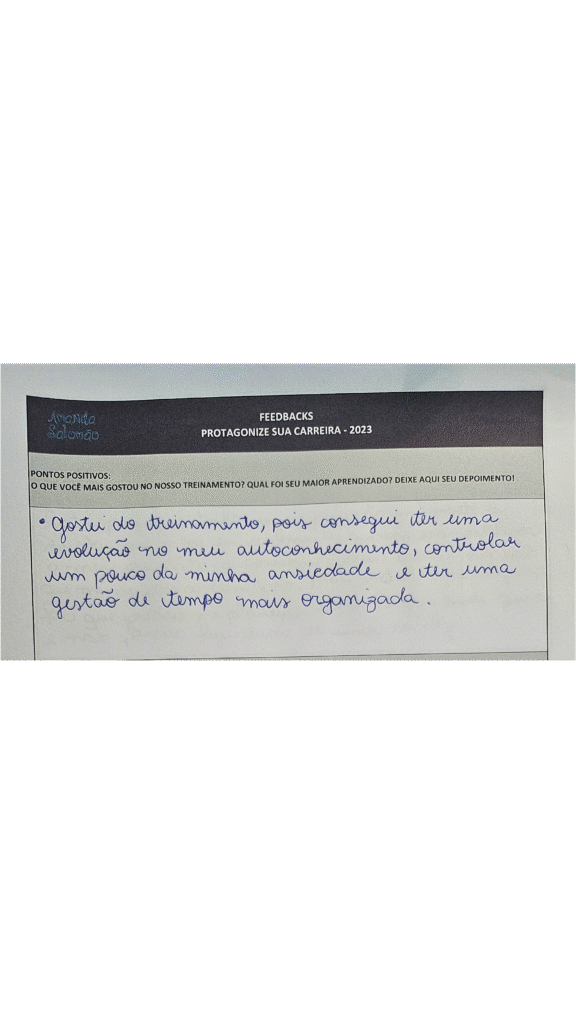 Amanda
Salomão
FEEDBACKS
PROTAGONIZE SUA CARREIRA - 2023
PONTOS POSITIVOS:
O QUE VOCÊ MAIS GOSTOU NO NOSSO TREINAMENTO? QUAL FOI SEU MAIOR APRENDIZADO? DEIXE AQUI SEU DEPOIMENTO!
• Gostei do treinamento, pois consegui ter uma
evolução no meu autoconhecimento, controlar
um pouco da minha ansiedade e ter uma
gestão de tempo mais organizada.